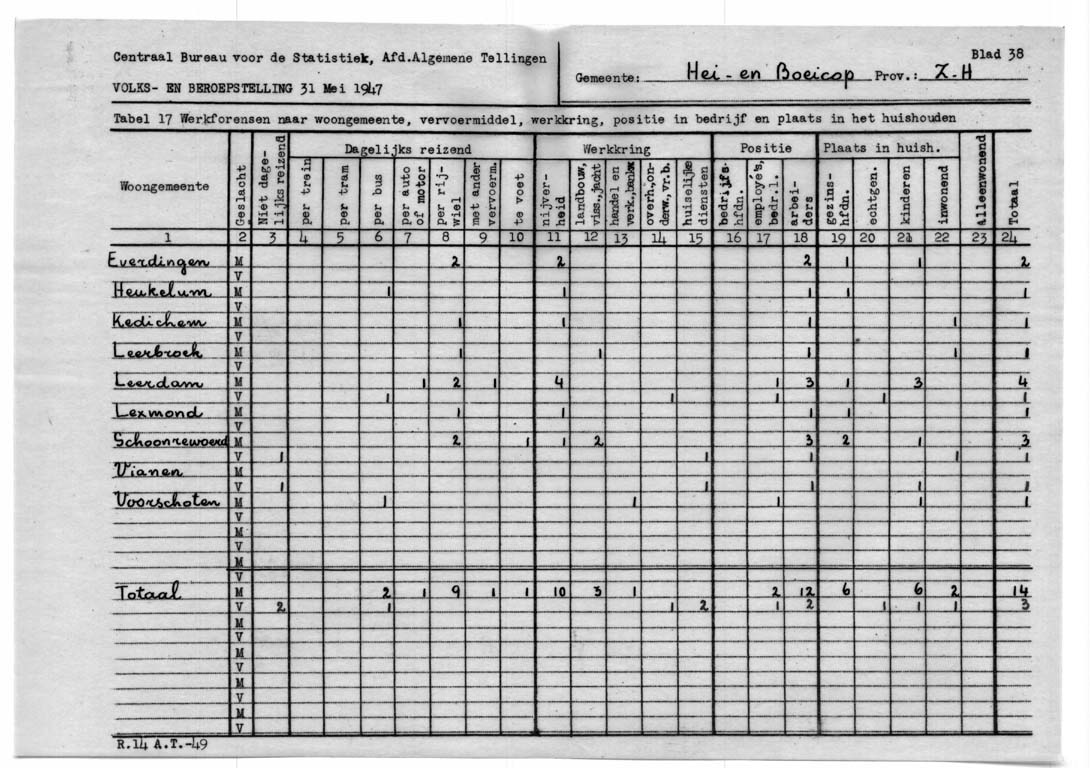 Centraal Bureau voor de Statistiek, Afd.Algemene Tellingen
VOLKS- EN BEROEPSTELLING 31 Mei 1947
Blad 38
Gemeente: Hei-en Boeicop Prov.: Z-H
Tabel 17 Werkforensen naar woongemeente, vervoermiddel, werkkring, positie in bedrijf en plaats in het huishouden
Dagelijks reizend Werkkring Positie Plaats in huish.
Woongemeente Geslacht Niet dage-lijks reizend per trein per tram per bus per auto of motor per rij-wiel met ander vervoerm. te voet nijver-heid landbouw, viss., jacht handel en verk., bankw overh., on-derw., vr.b. huiselijke diensten bedrijfs-hfdn. employé's, bedr.l. arbei-ders gezins-hfdn. echtgen. kinderen inwonend Alleenwonend Totaal
1 2 3 4 5 6 7 8 9 10 11 12 13 14 15 16 17 18 19 20 21 22 23 24
Everdingen M 2 2 2 1 1 2
V
Heukelum M 1 1 1 1 1
V
Kedichem M 1 1 1 1 1
V
Leerbroek M 1 1 1 1 1
V
Leerdam M 1 2 1 4 1 3 1 3 4
V 1 1 1 1 1
Lexmond M 1 1 1 1 1
V
Schoonrewoerd M 2 1 1 2 3 2 1 3
V 1 1 1 1 1
Vianen M
V 1 1 1 1 1
Voorschoten M 1 1 1 1 1
V
M
V
M
V
Totaal M 2 1 9 1 1 10 3 1 2 12 6 6 2 14
V 2 1 1 2 1 2 1 1 1 3
M
V
M
V
M
V
M
V
R.14 A.T.-49